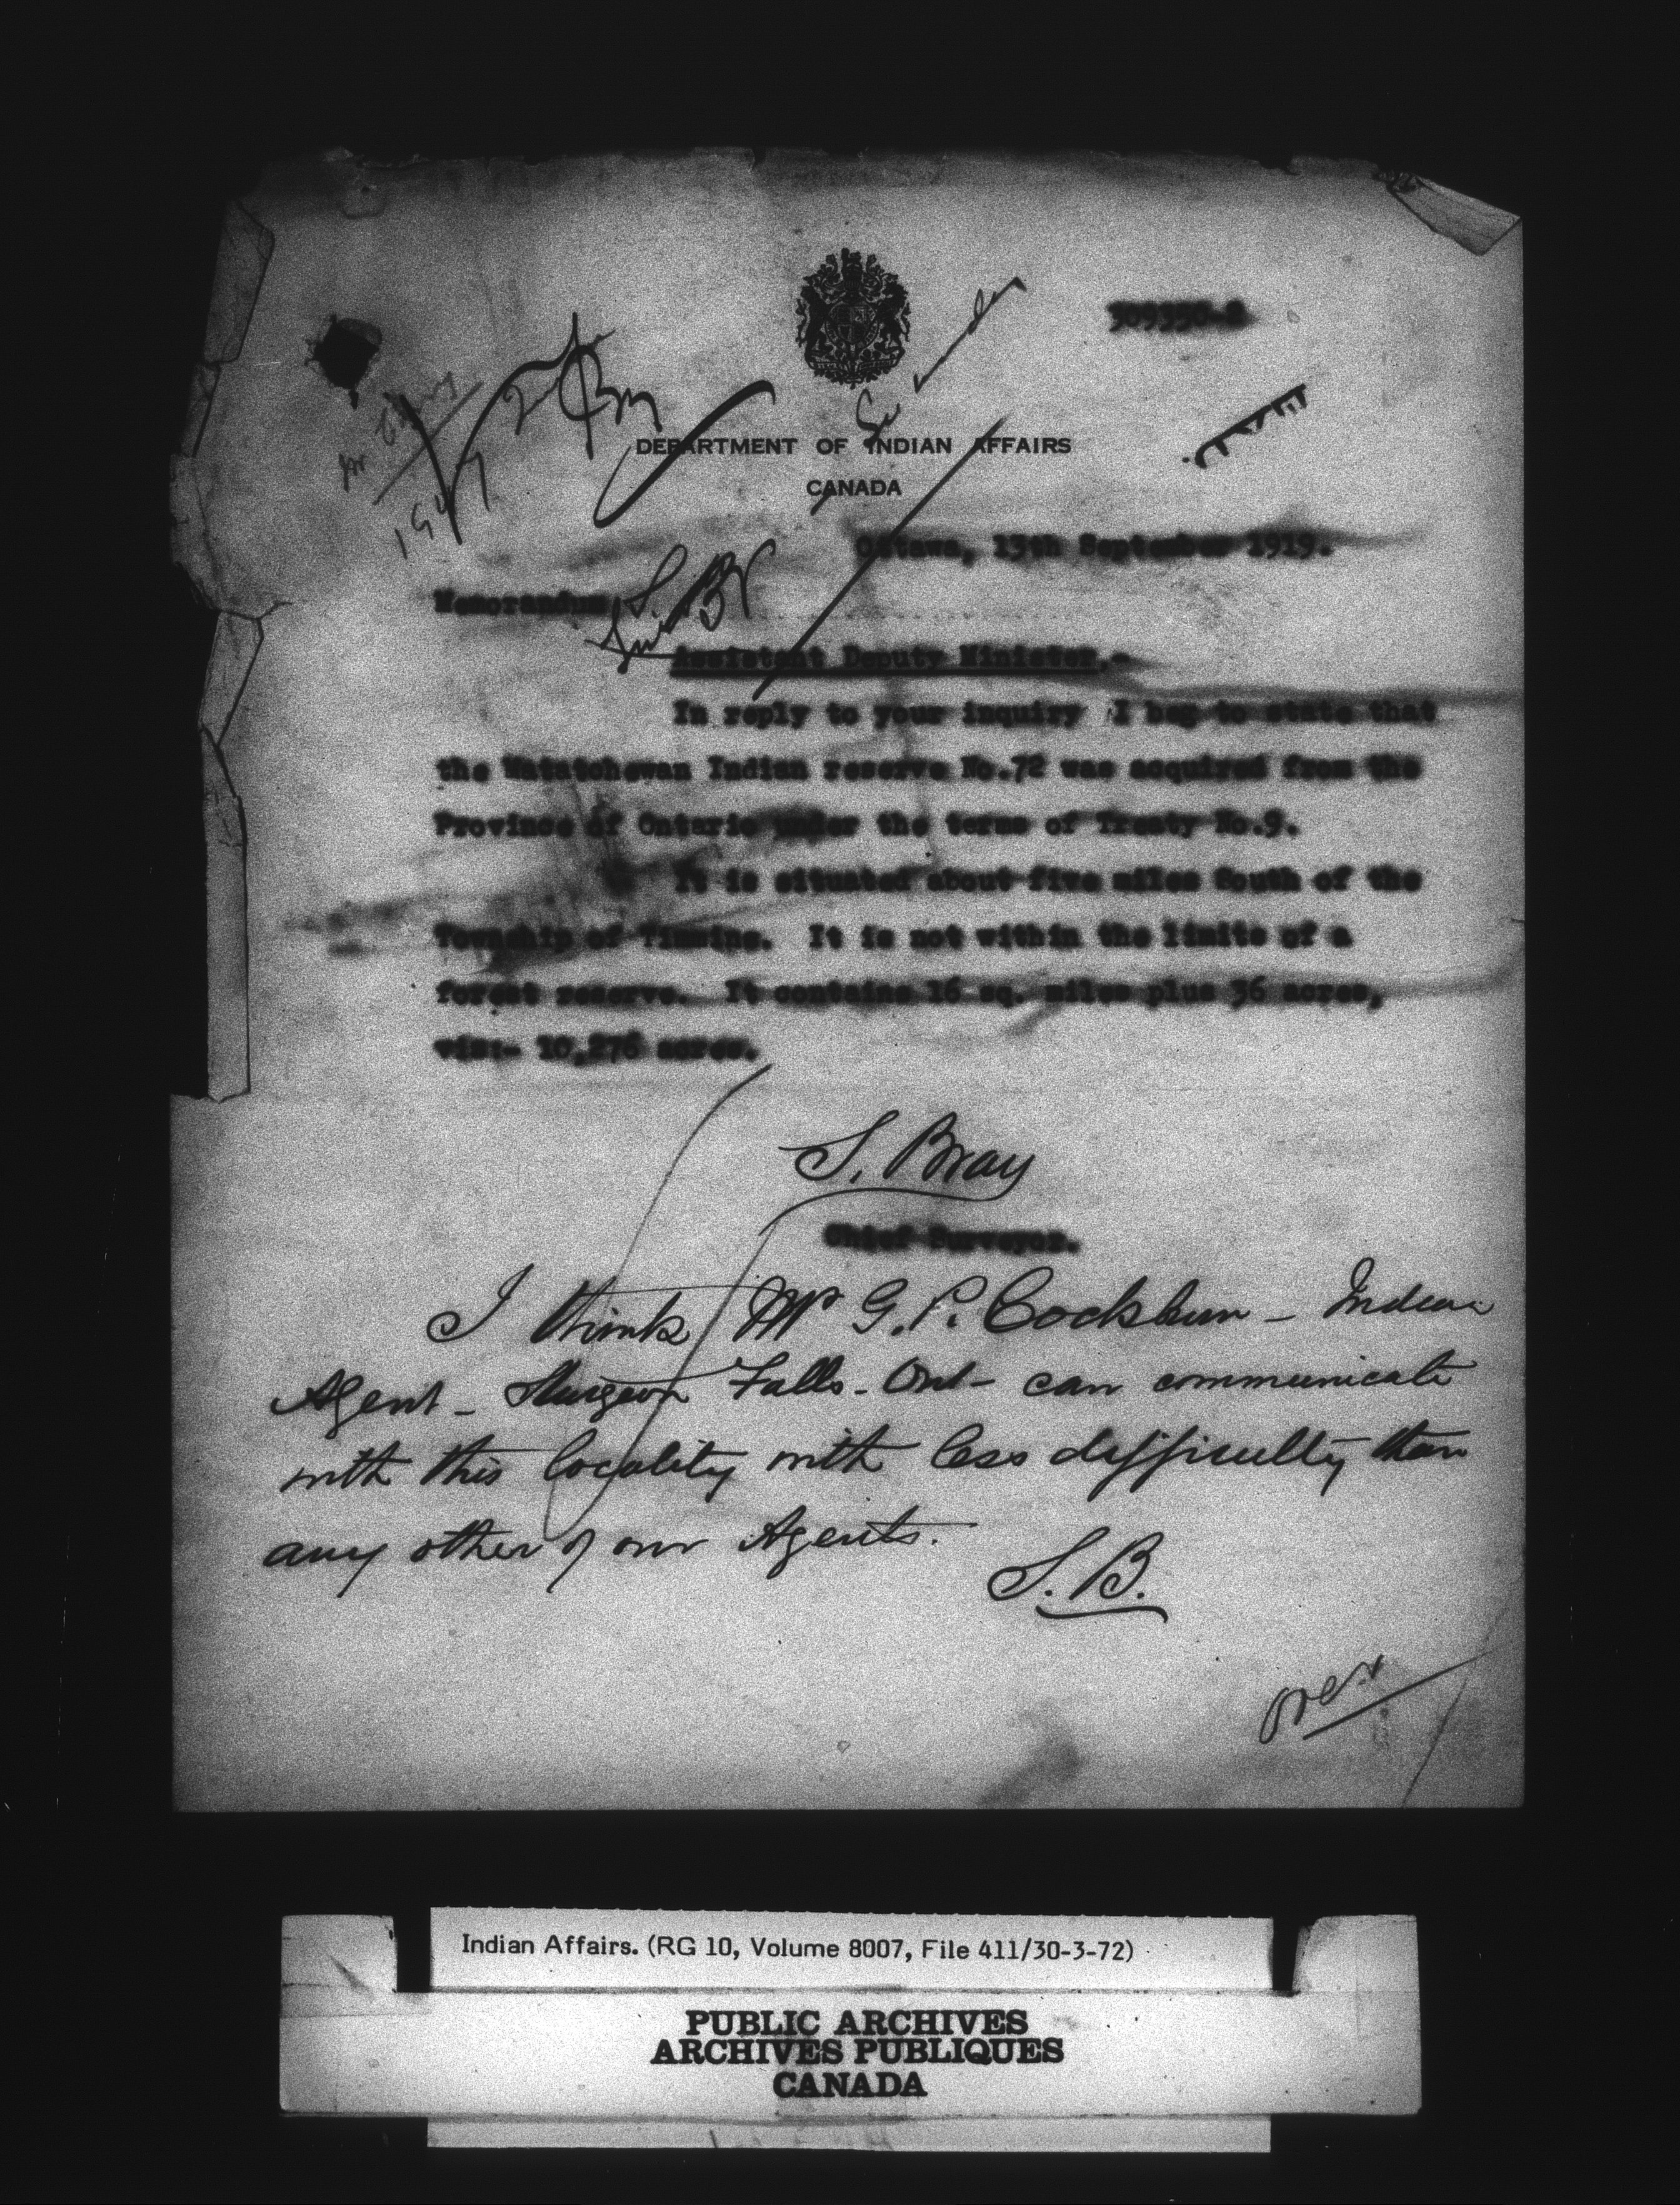 309350-2
DEPARTMENT OF INDIAN AFFAIRS
CANADA
Ottawa, 13th September 1919.
Memorandum
Assistant Deputy Minister,-
In reply to your inquiry I beg to state that
the Matatchewan Indian reserve No.72 was acquired from the
Province of Ontario under the terms of Treaty No.9.
It is situated about five miles South of the
Township of Timmins. It is not within the limits of a
forest reserve. It contains 16 sq. miles plus 36 acres,
viz:- 10,276 acres.
S. Bray
Chief Surveyor.
I think Mr G. P. Cockburn - Indian
Agent - Sturgeon Falls - Ont - can communicate
with this locality with less difficulty than
any other of our Agents.
S. B.
over
Indian Affairs. (RG 10, Volume 8007, File 411/30-3-72)
PUBLIC ARCHIVES
ARCHIVES PUBLIQUES
CANADA